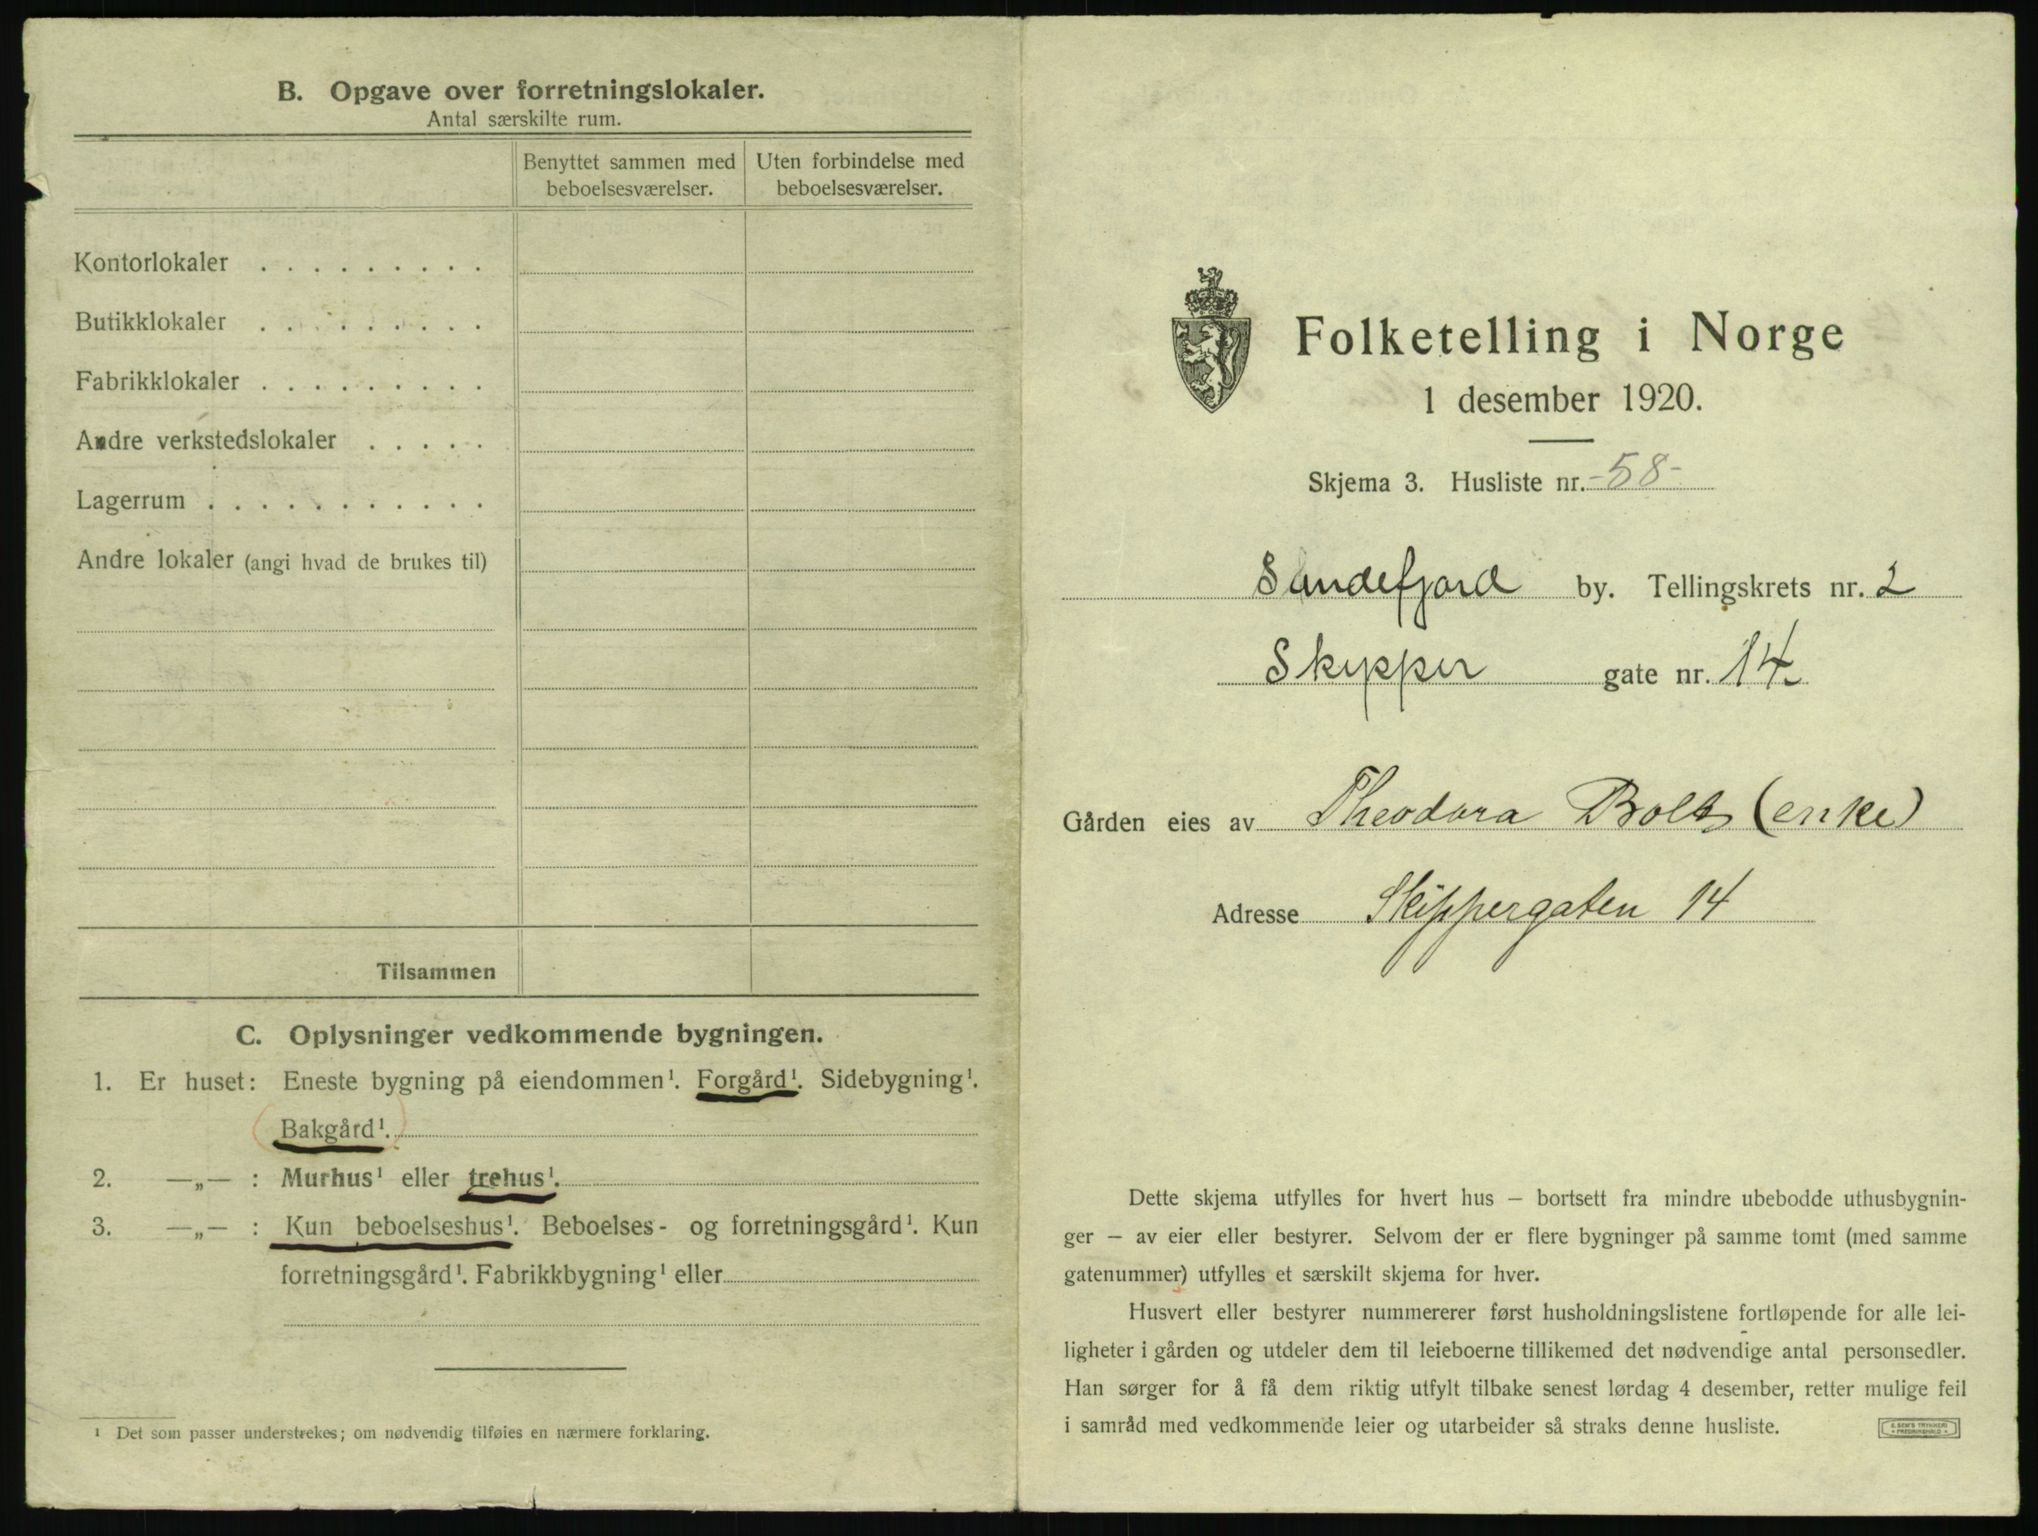 B. Opgave over forretningslokaler.
Antal særskilte rum.
Benyttet sammen med beboelsesværelser.
Uten forbindelse med beboelsesværelser.
Kontorlokaler . . . . . . . . .
Butikklokaler . . . . . . . . .
Fabrikklokaler . . . . . . . . .
Andre verkstedslokaler . . . . .
Lagerrum . . . . . . . . . . .
Andre lokaler (angi hvad de brukes til)
Tilsammen
C. Oplysninger vedkommende bygningen.
1. Er huset: Eneste bygning på eiendommen¹. Forgård¹. Sidebygning¹.
Bakgård¹.
2. —„— : Murhus¹ eller trehus¹.
3. —„— : Kun beboelseshus¹. Beboelses- og forretningsgård¹. Kun
forretningsgård¹. Fabrikkbygning¹ eller
¹ Det som passer understrekes; om nødvendig tilføies en nærmere forklaring.
Folketelling i Norge
1 desember 1920.
Skjema 3. Husliste nr. -58-
Sandefjord by. Tellingskrets nr. 2
Skipper gate nr. 14
Gården eies av Theodora Bolt (enke)
Adresse Skippergaten 14
Dette skjema utfylles for hvert hus — bortsett fra mindre ubebodde uthusbygnin-
ger — av eier eller bestyrer. Selvom der er flere bygninger på samme tomt (med samme
gatenummer) utfylles et særskilt skjema for hver.
Husvert eller bestyrer nummererer først husholdningslistene fortløpende for alle lei-
ligheter i gården og utdeler dem til leieboerne tillikemed det nødvendige antal personsedler.
Han sørger for å få dem riktig utfylt tilbake senest lørdag 4 desember, retter mulige feil
i samråd med vedkommende leier og utarbeider så straks denne husliste.
E. SEM'S TRYKKERI
FREDRIKSHALD